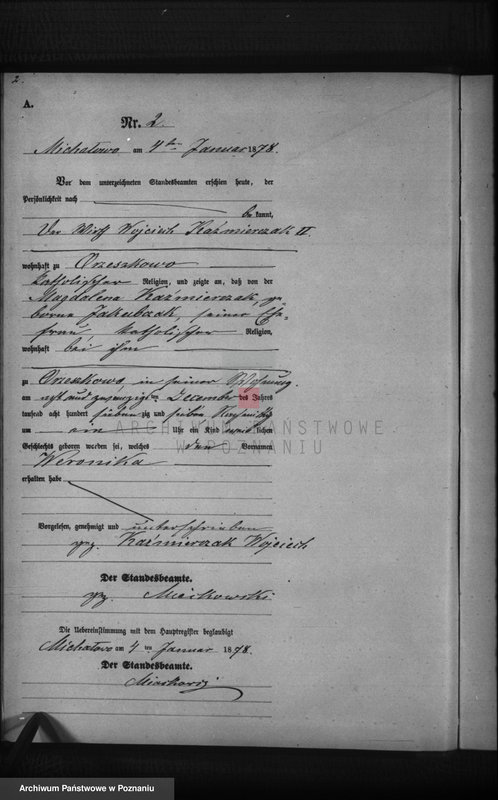 2.
A.
Nr. 2.
Michałowo am 4ten Januar 1878.
Vor dem unterzeichneten Standesbeamten erschien heute, der
Persönlichkeit nach
be kannt,
Der Wirth Wojciech Kaźmierczak II.
wohnhaft zu Orzeszkowo
katholischer Religion, und zeigte an, daß von der
Magdalena Kaźmierczak, ge-
borne Jakubczak, seiner Ehe-
frau katholischer Religion,
wohnhaft bei ihm
zu Orzeszkowo, in seiner Wohnung
am acht und zwanzigsten Dezember des Jahres
tausend acht hundert sieben zig und sieben Nachmittags
um ein Uhr ein Kind weiblichen
Geschlechts geboren worden sei, welches den Vornamen
Weronika
erhalten habe
Vorgelesen, genehmigt und unterschrieben
gez. Kaźmierczak Wojciech
Der Standesbeamte.
gez.
Die Uebereinstimmung mit dem Hauptregister beglaubigt
Michałowo am 4 ten Januar 1878.
Der Standesbeamte.
ARCHIWUM PAŃSTWOWE
W POZNANIU
Archiwum Państwowe w Poznaniu